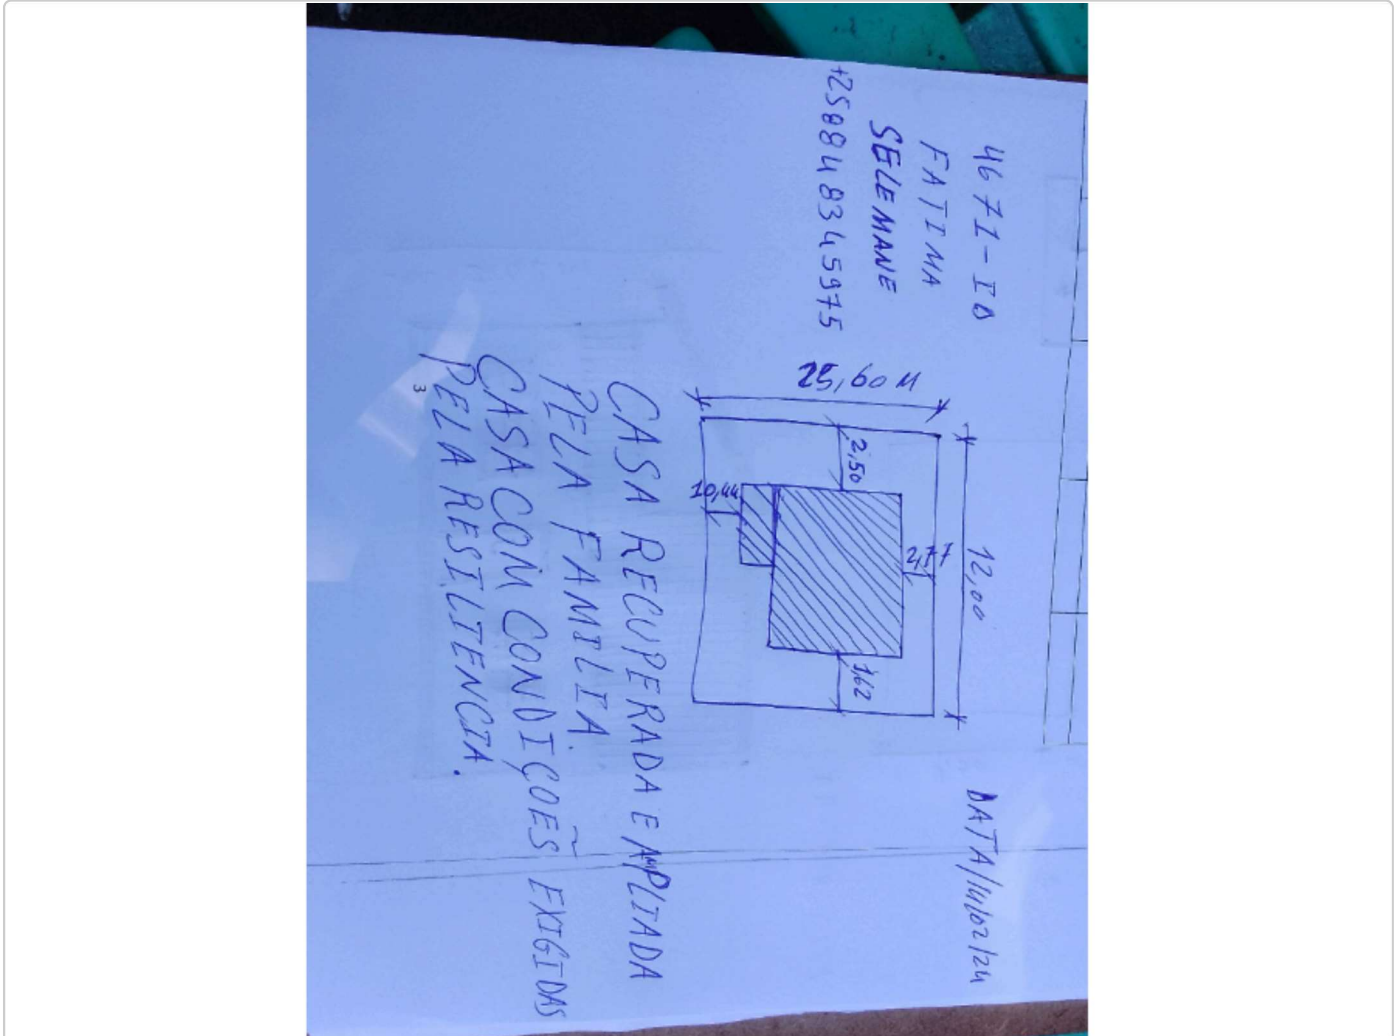 4671-ID
FATIMA
SELEMANE
+258848345975
DATA/14/02/24
12,00
25,60 M
2,77
2,50
1,62
10,44
CASA RECUPERADA E AMPLIADA
PELA FAMILIA.
CASA COM CONDIÇOES EXIGIDAS
PELA RESILIENCIA.
3